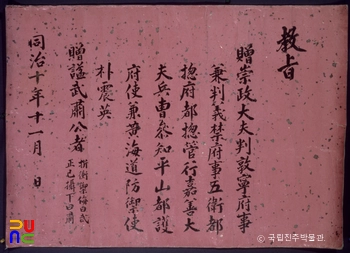 教旨
贈崇政大夫判敦寧府事
兼判義禁府事五衛都
摠府都摠管行嘉善大
夫兵曹參知平山都護
府使兼黃海道防禦使
朴震英
贈諡武肅公者
折衝禦侮曰武
正己攝下曰肅
同治十年十一月 日
© 국립진주박물관